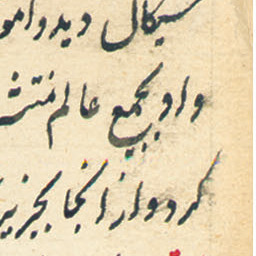 سیکال دیدو امو
و او بجمیع عالم منتشر
کرد و از انجا بجزیر